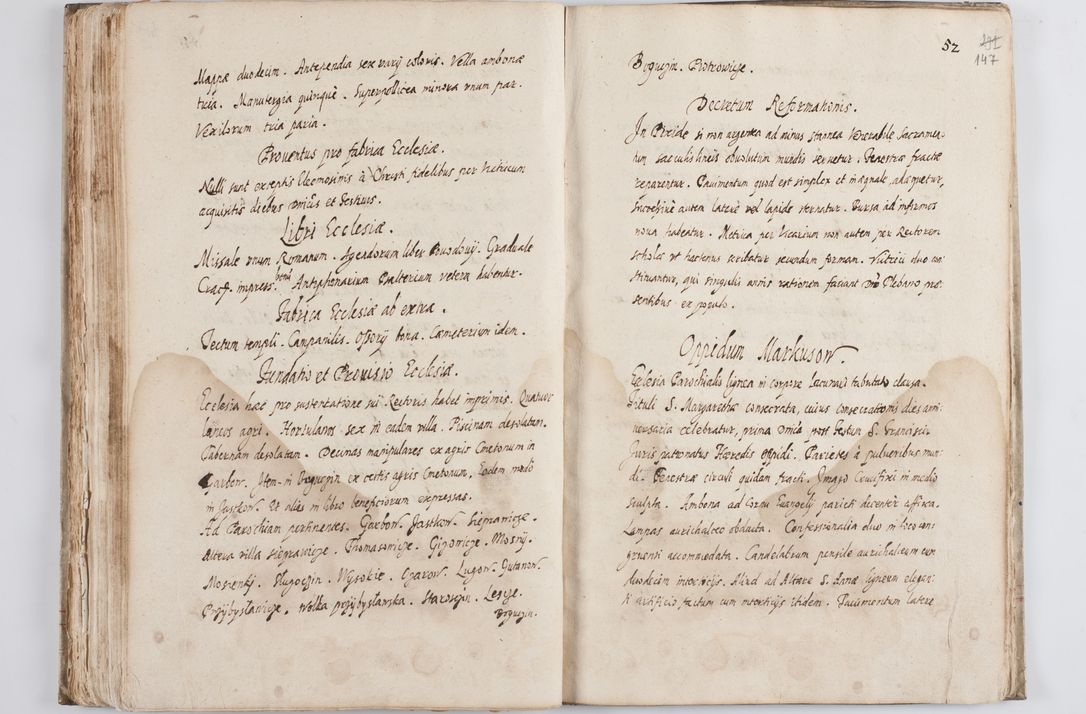 Mappæ duodecim. Antependia sex varij coloris. Vella ambonæ
tria. Manutergia quinque. Superpellicea minora vnum par.
Vexillorum tria paria.
Prouentus pro fabrica Ecclesiæ.
Nulli sunt exceptis Elemosinis à Christi fidelibus per Vitricum
acquisitis diebus Dnicis et festiuis.
Libri Ecclesiæ.
Missale vnum Romanum. Agendorum liber Powodouij. Graduale
Crac. impress. bonum Antiphonarium Psalterium vetera habentur.
Fabrica Ecclesiæ ab extra.
Tectum templi. Campanilis. Ossorij bona. Cæmeterium idem.
Fundatio et Prouisio Ecclesiæ.
Ecclesia hæc pro sustentatione sui Rectoris habet imprimis. Quatuor
laneos agri. Hortulanos sex in eadem villa. Piscinam desolatam.
Tabernam desolatam. Decimas manipulares ex agris Cmetonum in
Garbow. Item in Boguczin ex certis agris Cmetonum, Eodem modo
in Jastkow. Et aliàs in libro beneficiorum expressas.
Ad Parochiam pertinentes. Garbow. Jastkow. Sieprawice.
Altera villa Sieprawicze. Thomasowicze. Gizowicze. Moszny.
Moszenky. Dlugoczin. Wysokie. Ozarow. Lugow. Gutanow.
Przybyslawicze. Wolka przybyslawska. Staroscin. Lescze.
Boguczin.
52 191
147
Boguczin. Piotrowicze.
Decretum Reformationis.
In Pixide si non argentea ad minus stannea Venerabile Sacramen
tum sacculis lineis obuolutum mundis seruetur. Fenestræ fractæ
reparentur. Pauimentum quod est simplex et inæquale, adæquetur,
successiuè autem latere vel lapide sternatur. Bursa ad infirmos
noua habeatur. Metrica per Vicarium non autem per Rectorem
scholæ vt hactenus scribatur secundum formam. Vitrici duo con
stituantur, qui singulis annis rationem faciant Dno Plebano præ
sentibus ex populo.
Oppidum Markusow.
Ecclesia Parochialis lignea in corpore lacunari tabulato clausa.
Tituli S. Margarethæ consecrata, cuius consecrationis dies anni
uersaria celebratur, prima Dnica post festum S. Francisci.
Juris patronatus Hæredis oppidi. Parietes à pulueribus mun
di. Fenestræ circuli quidam fracti. Imago Crucifixi in medio
sculpta. Ambona ad Cornu Euangelij parieti decenter affixa.
Lampas aurichalceo obducta. Confessionalia duo in loco con
gruenti accommodata. Candelabrum pensile aurichalceum cum
duodecim intorticijs. Aliud ad Altare S. Annæ ligneum elegan
ti artificio factum cum intorticijs itidem. Pauimentum latere